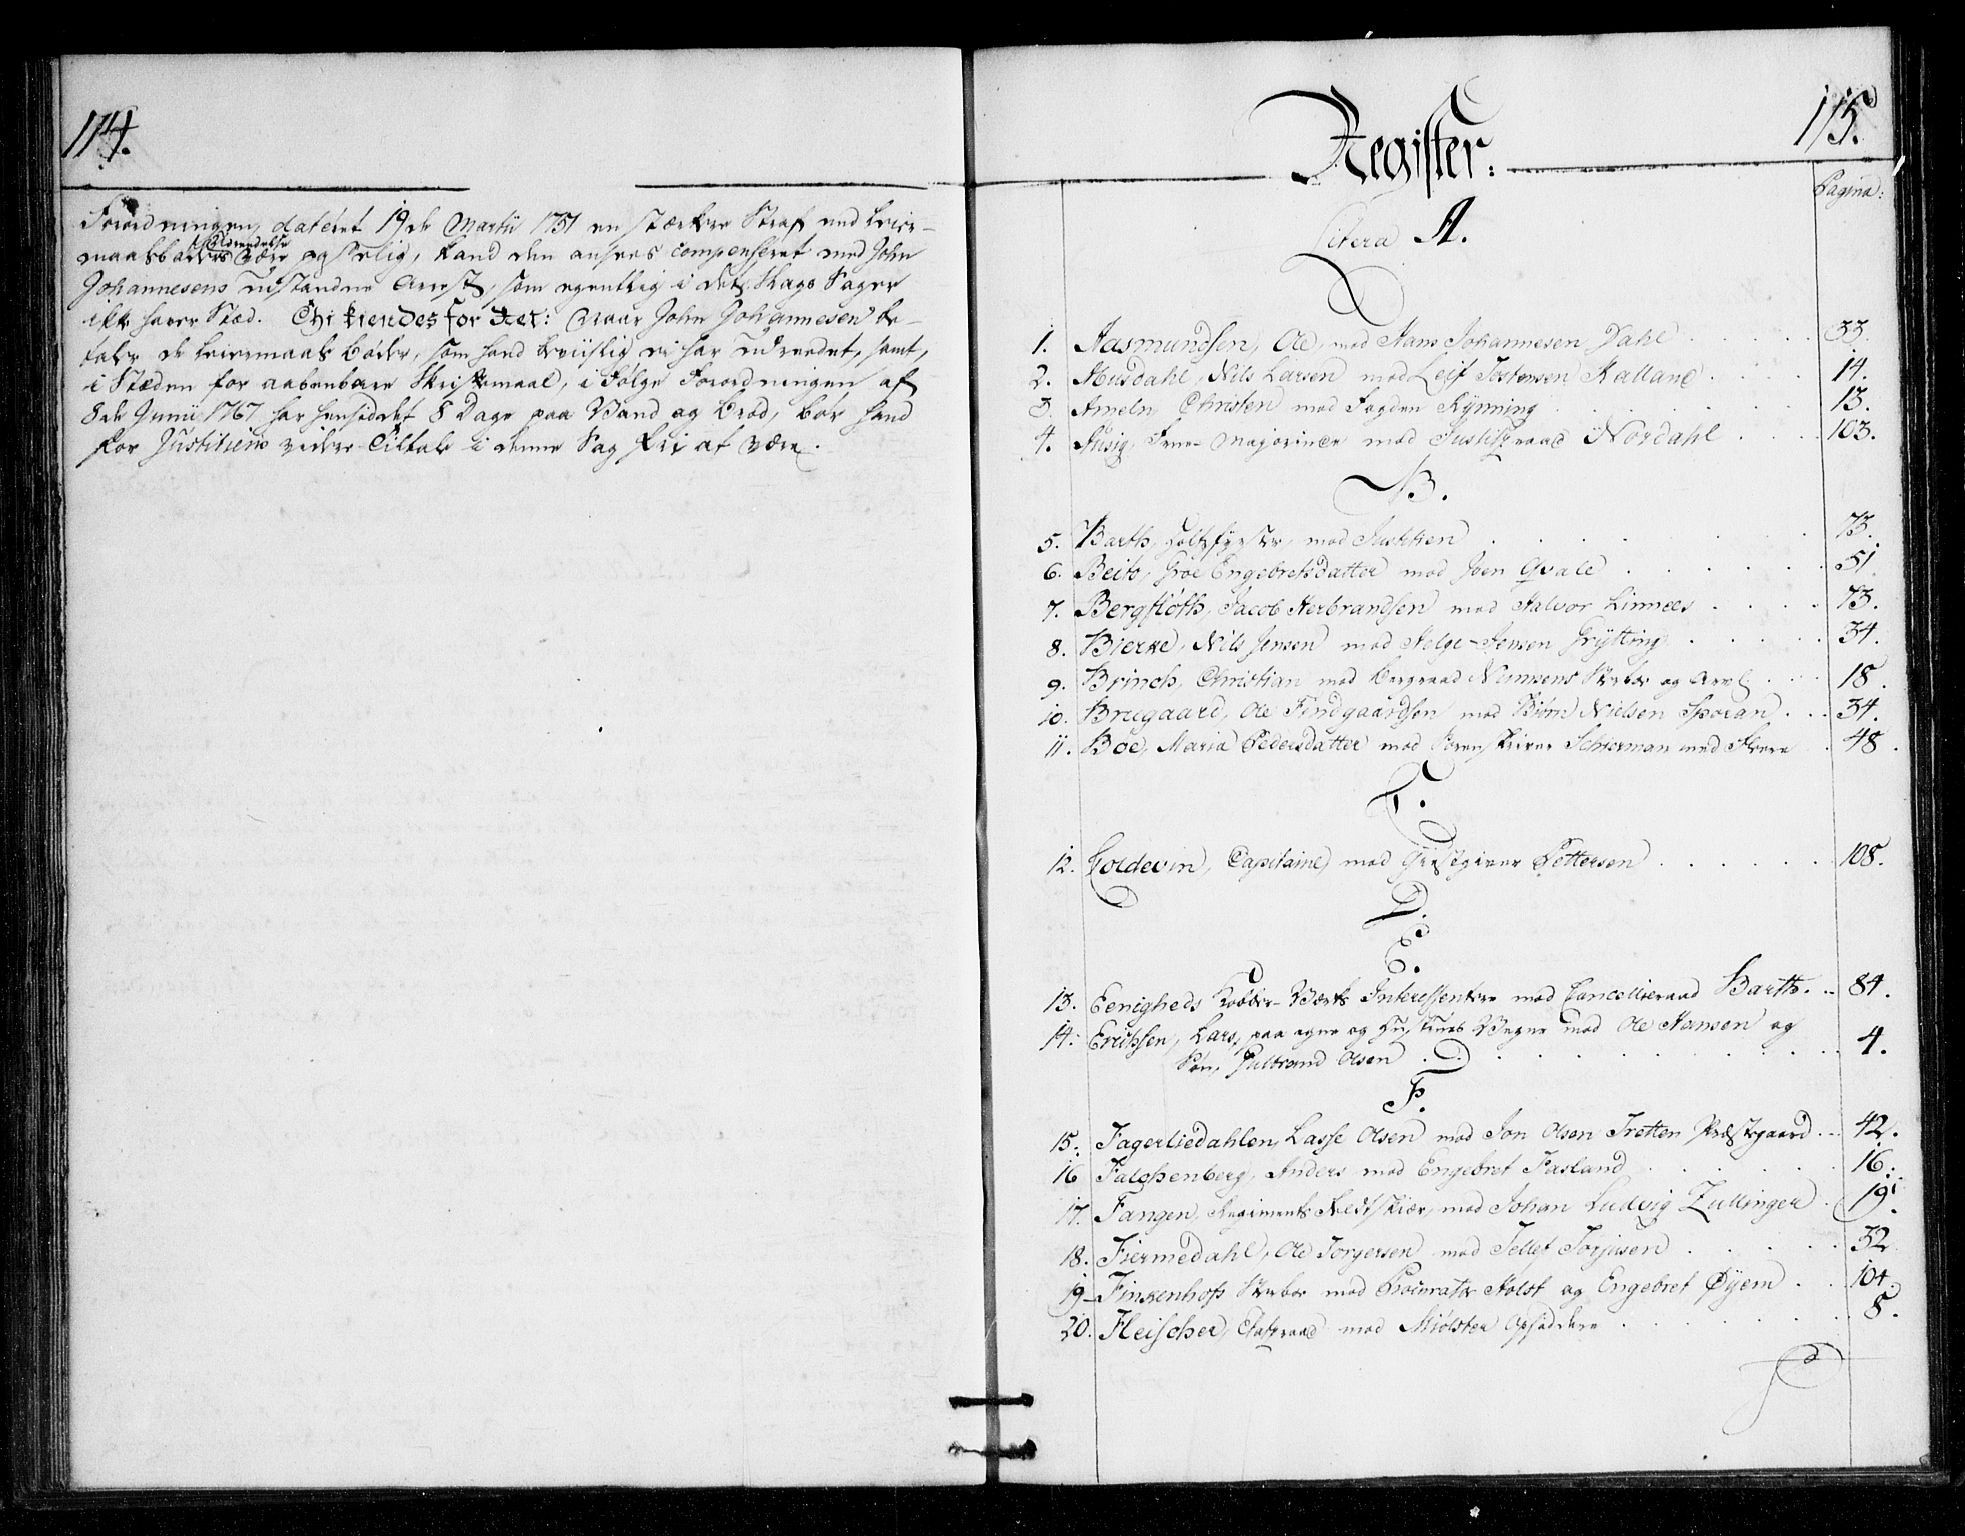 114.
Forordningen, dateret 19de Martii 1751 en stærkere Straf end Leier-
maals bøders Udredelse være pg følig, kand den ansees compenseret med John
Johannesens udstandne Arrest, som egentlig i det Slags Sager
ikke haver Stæd. Thi kiendes for Ret: Naar John Johannesen be-
taler de Leiermaals Bøder, som hand beviislig ei har udreedet, samt,
i Stæden for aabenbare Skriftemaal, i Følge Forordningen af
8de Junii 1767 har hensiddet 8 Dage paa Vand og Brød, bør hand
for Justitiens videre Tiltale i denne Sag frie at være.
115.
Register:
Pagina:
Litera A.
1. Aasmundsen, Ole, mod Hans Johannesen Dahl 33.
2. Ausdahl, Nils Larsen mod Leif Tostensen Kalland 14.
3. Ameln Christen mod Fogden Rÿnning 13.
4. Ausig, Frue Majorinde mod Justitzraad Nordahl 103.
B.
5. Barth, Holtzførster, mod Justitien 73.
6. Beito, Groe Engebretsdatter mod Joen Qvale 51
7. Bergfløth, Jacob Herbrandsen mod Halvor Linnees 73.
8. Bierke, Nils Jensen mod Helge Jensen Grÿtting 34.
9. Brinch, Christian mod Bergraad Stærboe og Arv 18.
10. Bruegaard, Ole Findgaardsen mod Biørn Nielsen Sporan 34.
11. Bøe, Maria Pedersdatter mod Sorenskriver Schierman med Fleere 48.
C.
12. Coldevin, Capitaine, mod Giestgiver Pettersen 108.
D.
E.
13. Eenigheds Kobber-Værks Interessentere mod Cancellieraad Barth 84.
14. Erichsen, Lars, paa egne og Hustrues Vegne mod Ole Hansen og
Søn, Gulbrand Olsen 4.
F.
15. Fagerliedahlen, Lasse Olsen mod Jon Olsen Tretten Præstegaard 42.
16 Falchenberg, Anders mod Engebret Fasland 16.
17. Fangen, Regiments Feldtskiær, mod Johan Ludvig Zullinger 19.
18. Fiermedahl, Ole Torgersen mod Tellef Torjusen 32
19. Finkenhofs Stærboe mod Procurator Holst og Engebret Øÿem 104.
20. Fleischer, Etatsraad mod Miølster Opsiddere 8.